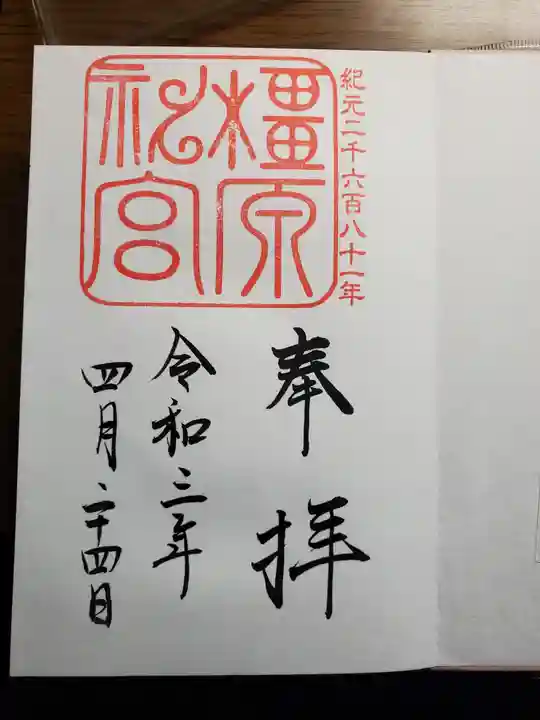 紀元二千六百八十一年
橿原
神宮
奉拝
令和三年
四月二十四日